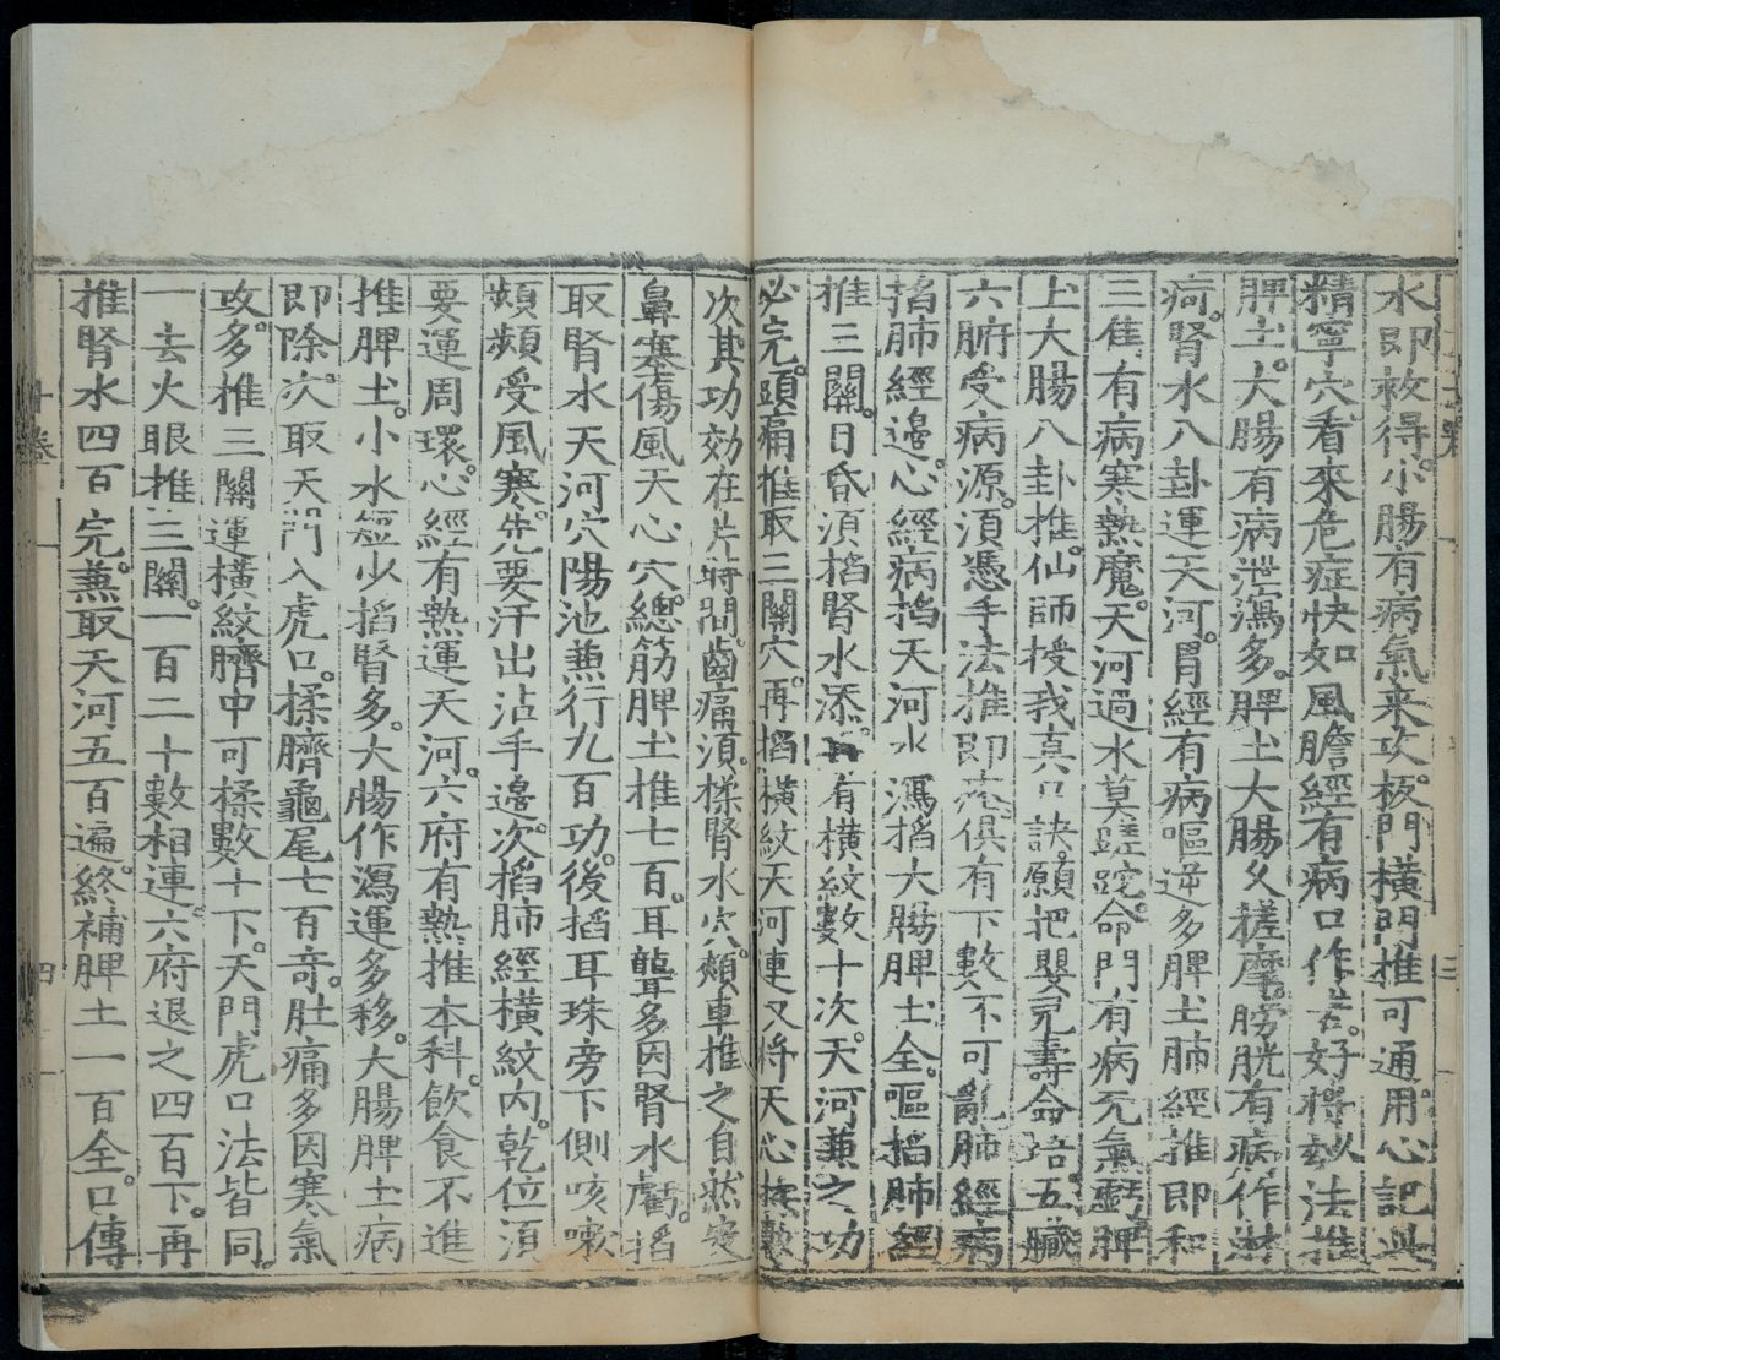 水即救得。小腸有病氣来攻。板門橫門推可通。用心記此
精寧穴看來危症快如風膽經有病口作苦。好將妙法推
脾土。大腸有病泄瀉多。脾土大腸久搓摩。膀胱有病作淋
疴。腎水八卦運天河。胃經有病嘔逆多脾土肺經推即和
三焦有病寒熱魔。天河過水莫蹉跎。命門有病元氣虧脾
上大腸八卦推。仙師授我真口訣。願把嬰児壽命培。五臟
六腑受病源。須憑手法推即痊俱有下數不可亂肺經病
掐肺經邊。心經病掐天河水瀉掐大腸脾土全。嘔掐肺經
推三關。目昏須掐腎水添。有橫紋數十次。天河兼之功
必完。頭痛推取三關穴。再掐橫紋天河連又將天心揉數
次其功効在片時間。齒痛須揉腎水穴。頰車推之自然安
鼻塞傷風天心穴。總筋脾土推七百。耳聾多因腎水虧。掐
取腎水天河穴陽池兼行九百功。後掐耳珠旁下側咳嗽
頻頻受風寒。先要汗出沾手邊。次掐肺經橫紋內。乾位須
要運周環。心經有熱運天河。六府有熱推本科。飲食不進
推脾土。小水短少掐腎多。大腸作瀉運多移。大腸脾土病
即除。次取天門入虎口。揉臍龜尾七百奇。肚痛多因寒氣
攻。多推三關運橫紋臍中可揉數十下。天門虎口法皆同。
一去火眼推三關。一百二十數相連。六府退之四百下。再
推腎水四百完。兼取天河五百遍。終補脾土一百全。口傳